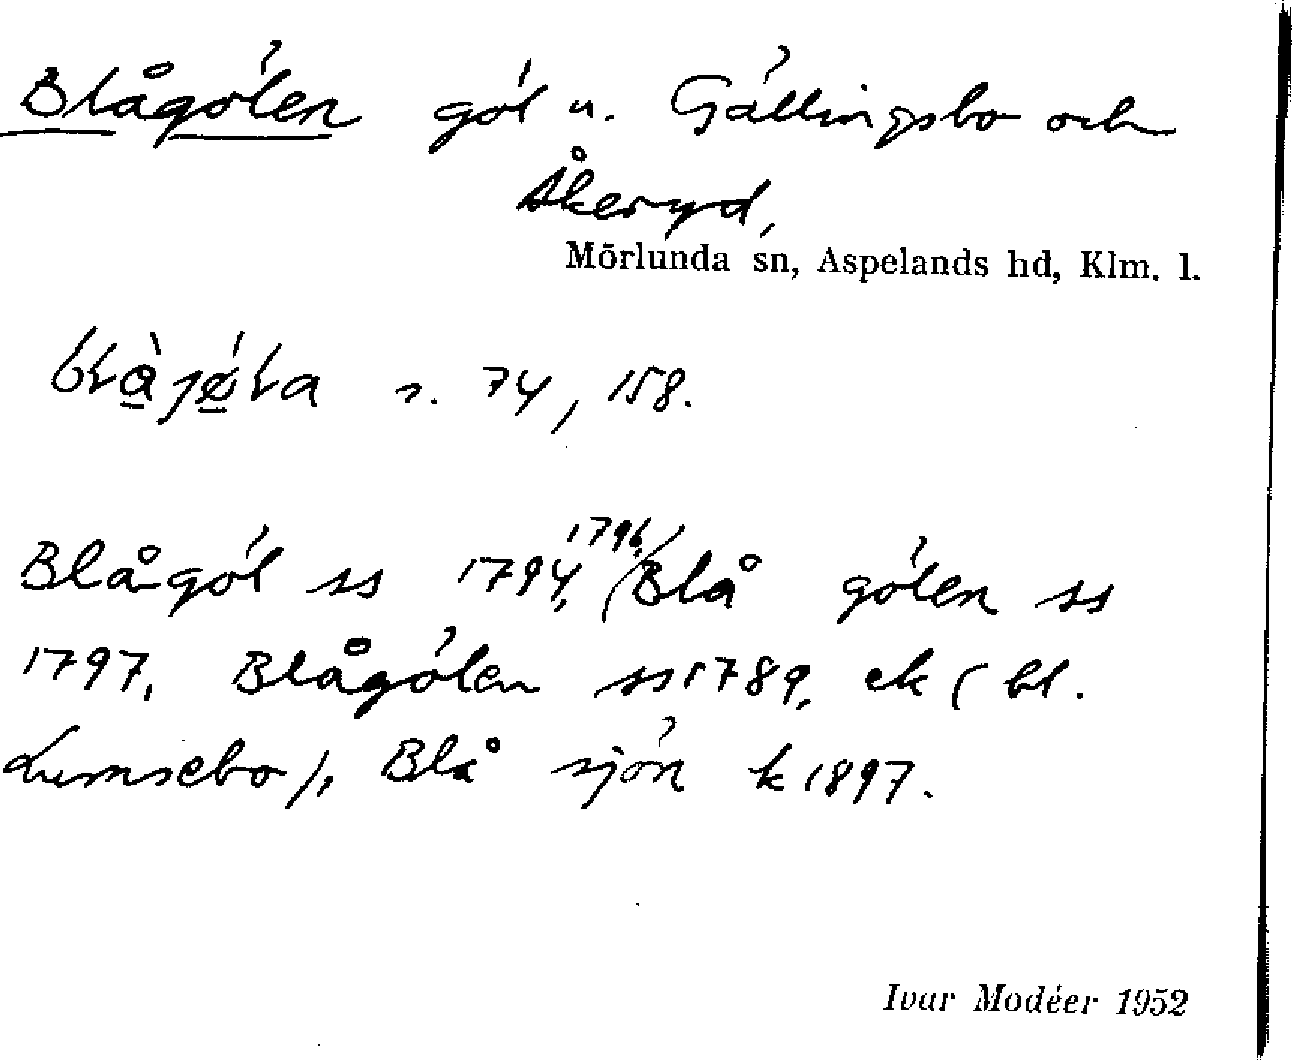 Blågölen göl u. Gällingsbo och
Åkeryd,
Mörlunda sn, Aspelands hd, Klm. l.
s. 74, 158.
Blågöl ss 1794, 1796, (Blå gölen ss
1797, Blågölen ss 1789, ek (bl.
Lumsebo), Blå sjön k 1897.
Ivar Modéer 1952